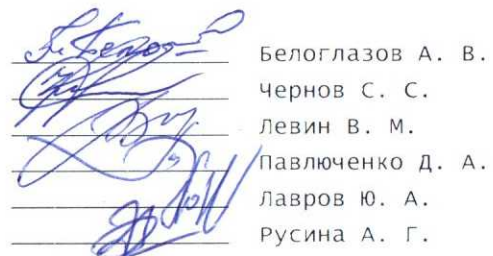 Белоглазов А. В.
Чернов С. С.
Левин В. М.
Павлюченко Д. А.
Лавров Ю. А.
Русина А. Г.